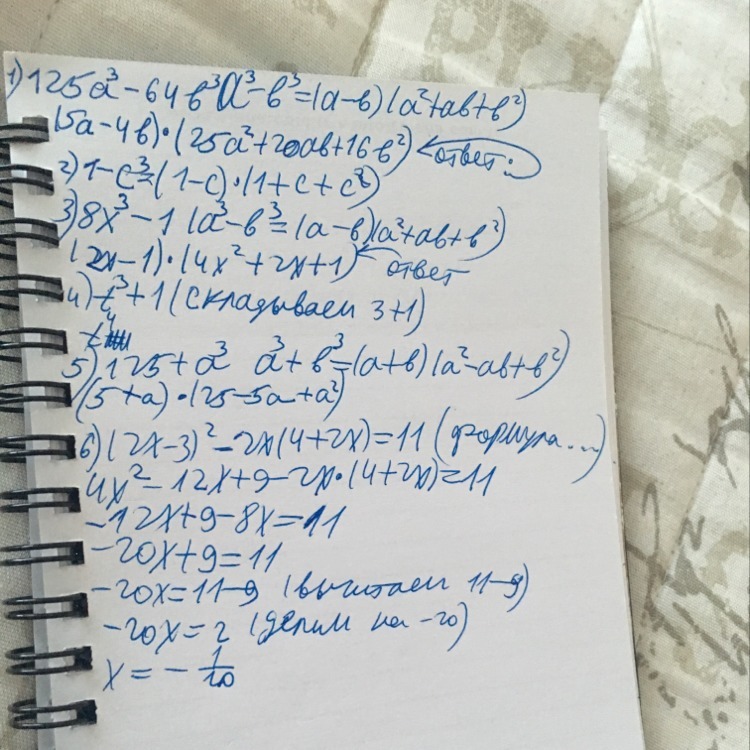 1) 125a³ - 64в³ a³-в³=(a-в)(a²+aв+в²)
(5a-4в)·(25a²+20aв+16в²) ← ответ:
2) 1-c³=(1-c)·(1+c+c²)
3) 8x³-1 (a³-в³=(a-в)(a²+aв+в²)
(2x-1)·(4x²+2x+1) ← ответ
4) t³+1 (складываем 3+1)
t⁴
5) 125+a³ a³+в³=(a+в)(a²-aв+в²)
(5+a)·(25-5a+a²)
6) (2x-3)²-2x(4+2x)=11 (формула...)
4x²-12x+9-2x·(4+2x)=11
-12x+9-8x=11
-20x+9=11
-20x=11-9 (вычитаем 11-9)
-20x=2 (делим на -20)
x=-1/10